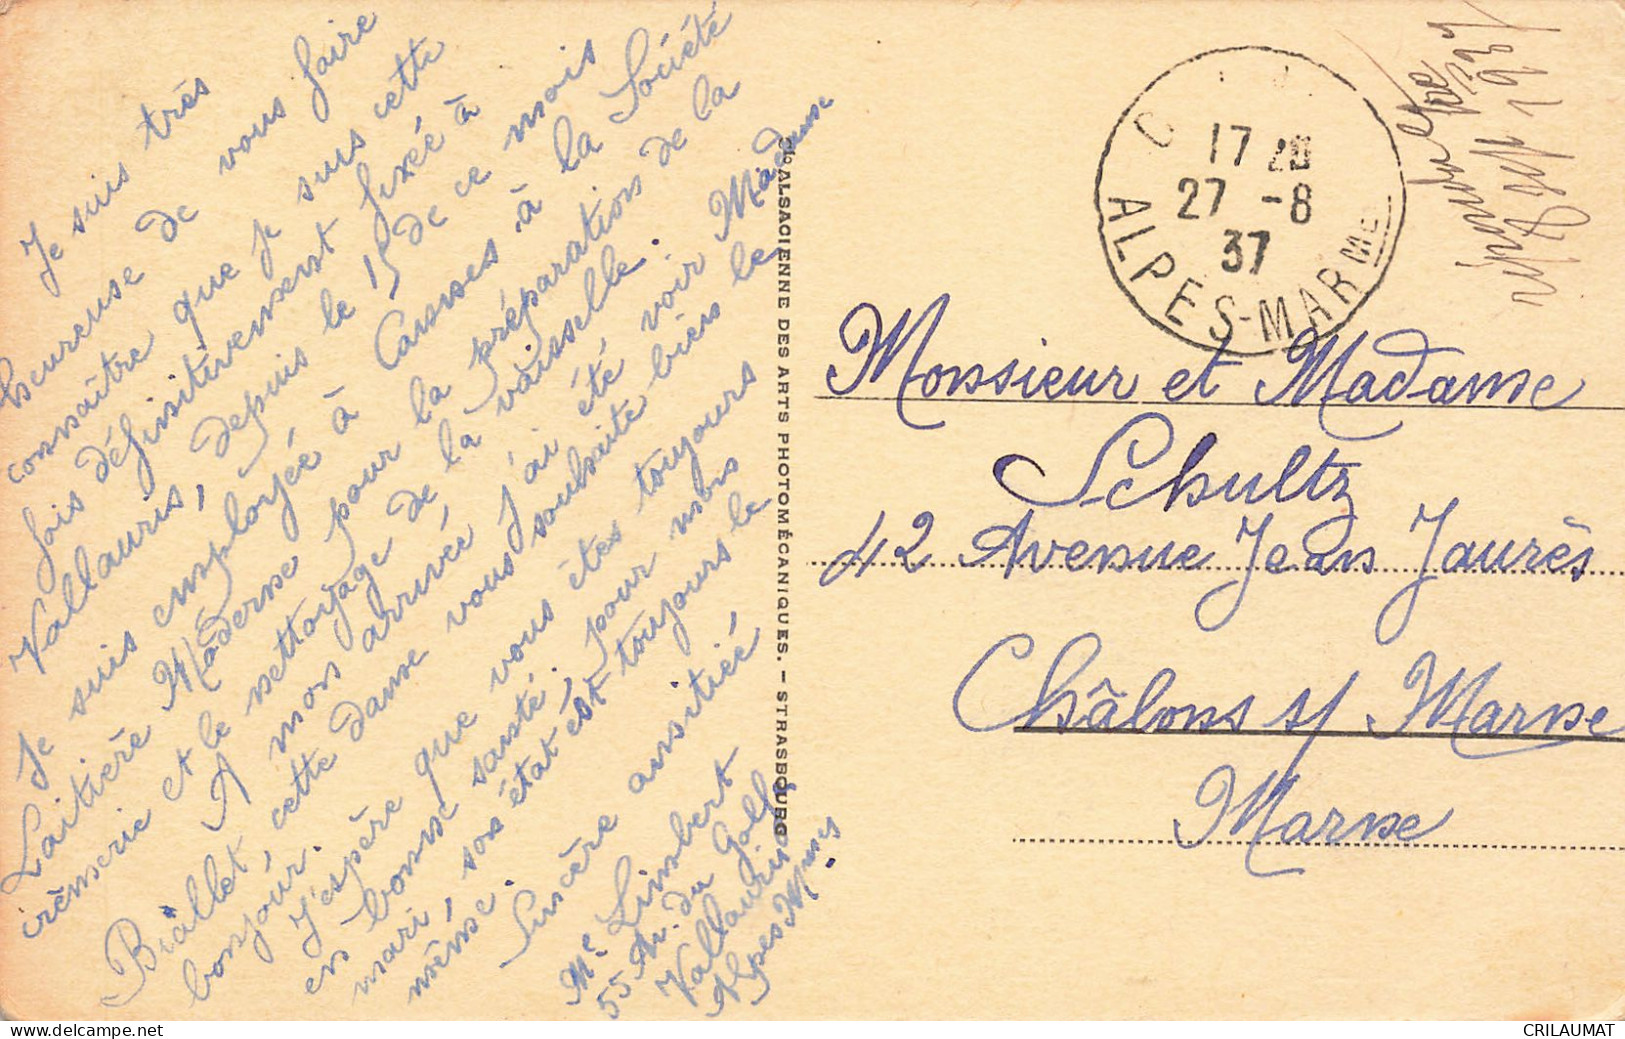 Je suis très
heureuse de vous faire
connaître que je suis cette
fois définitivement fixée à
Vallauris, depuis le 15 de ce mois
Je suis employée à Cannes à la Société
Laitière Moderne pour la préparation de la
crèmerie et le nettoyage de la vaisselle.
A mon arrivée j'ai été voir Madame
Biallet, cette dame vous souhaite bien le
bonjour.
J'espère que vous êtes toujours
en bonne santé, pour mon
mari, son état est toujours le
même.
Sincère amitié
Me Limbert
55 Av. du Golf
Vallauris
Alpes Mmes
Cie ALSACIENNE DES ARTS PHOTOMÉCANIQUES. — STRASBOURG
17
27 -8
37
ALPES-MARMES
1937
Monsieur et Madame
Schultz
42 Avenue Jean Jaurès
Châlons s/ Marne
Marne
CRILAUMAT